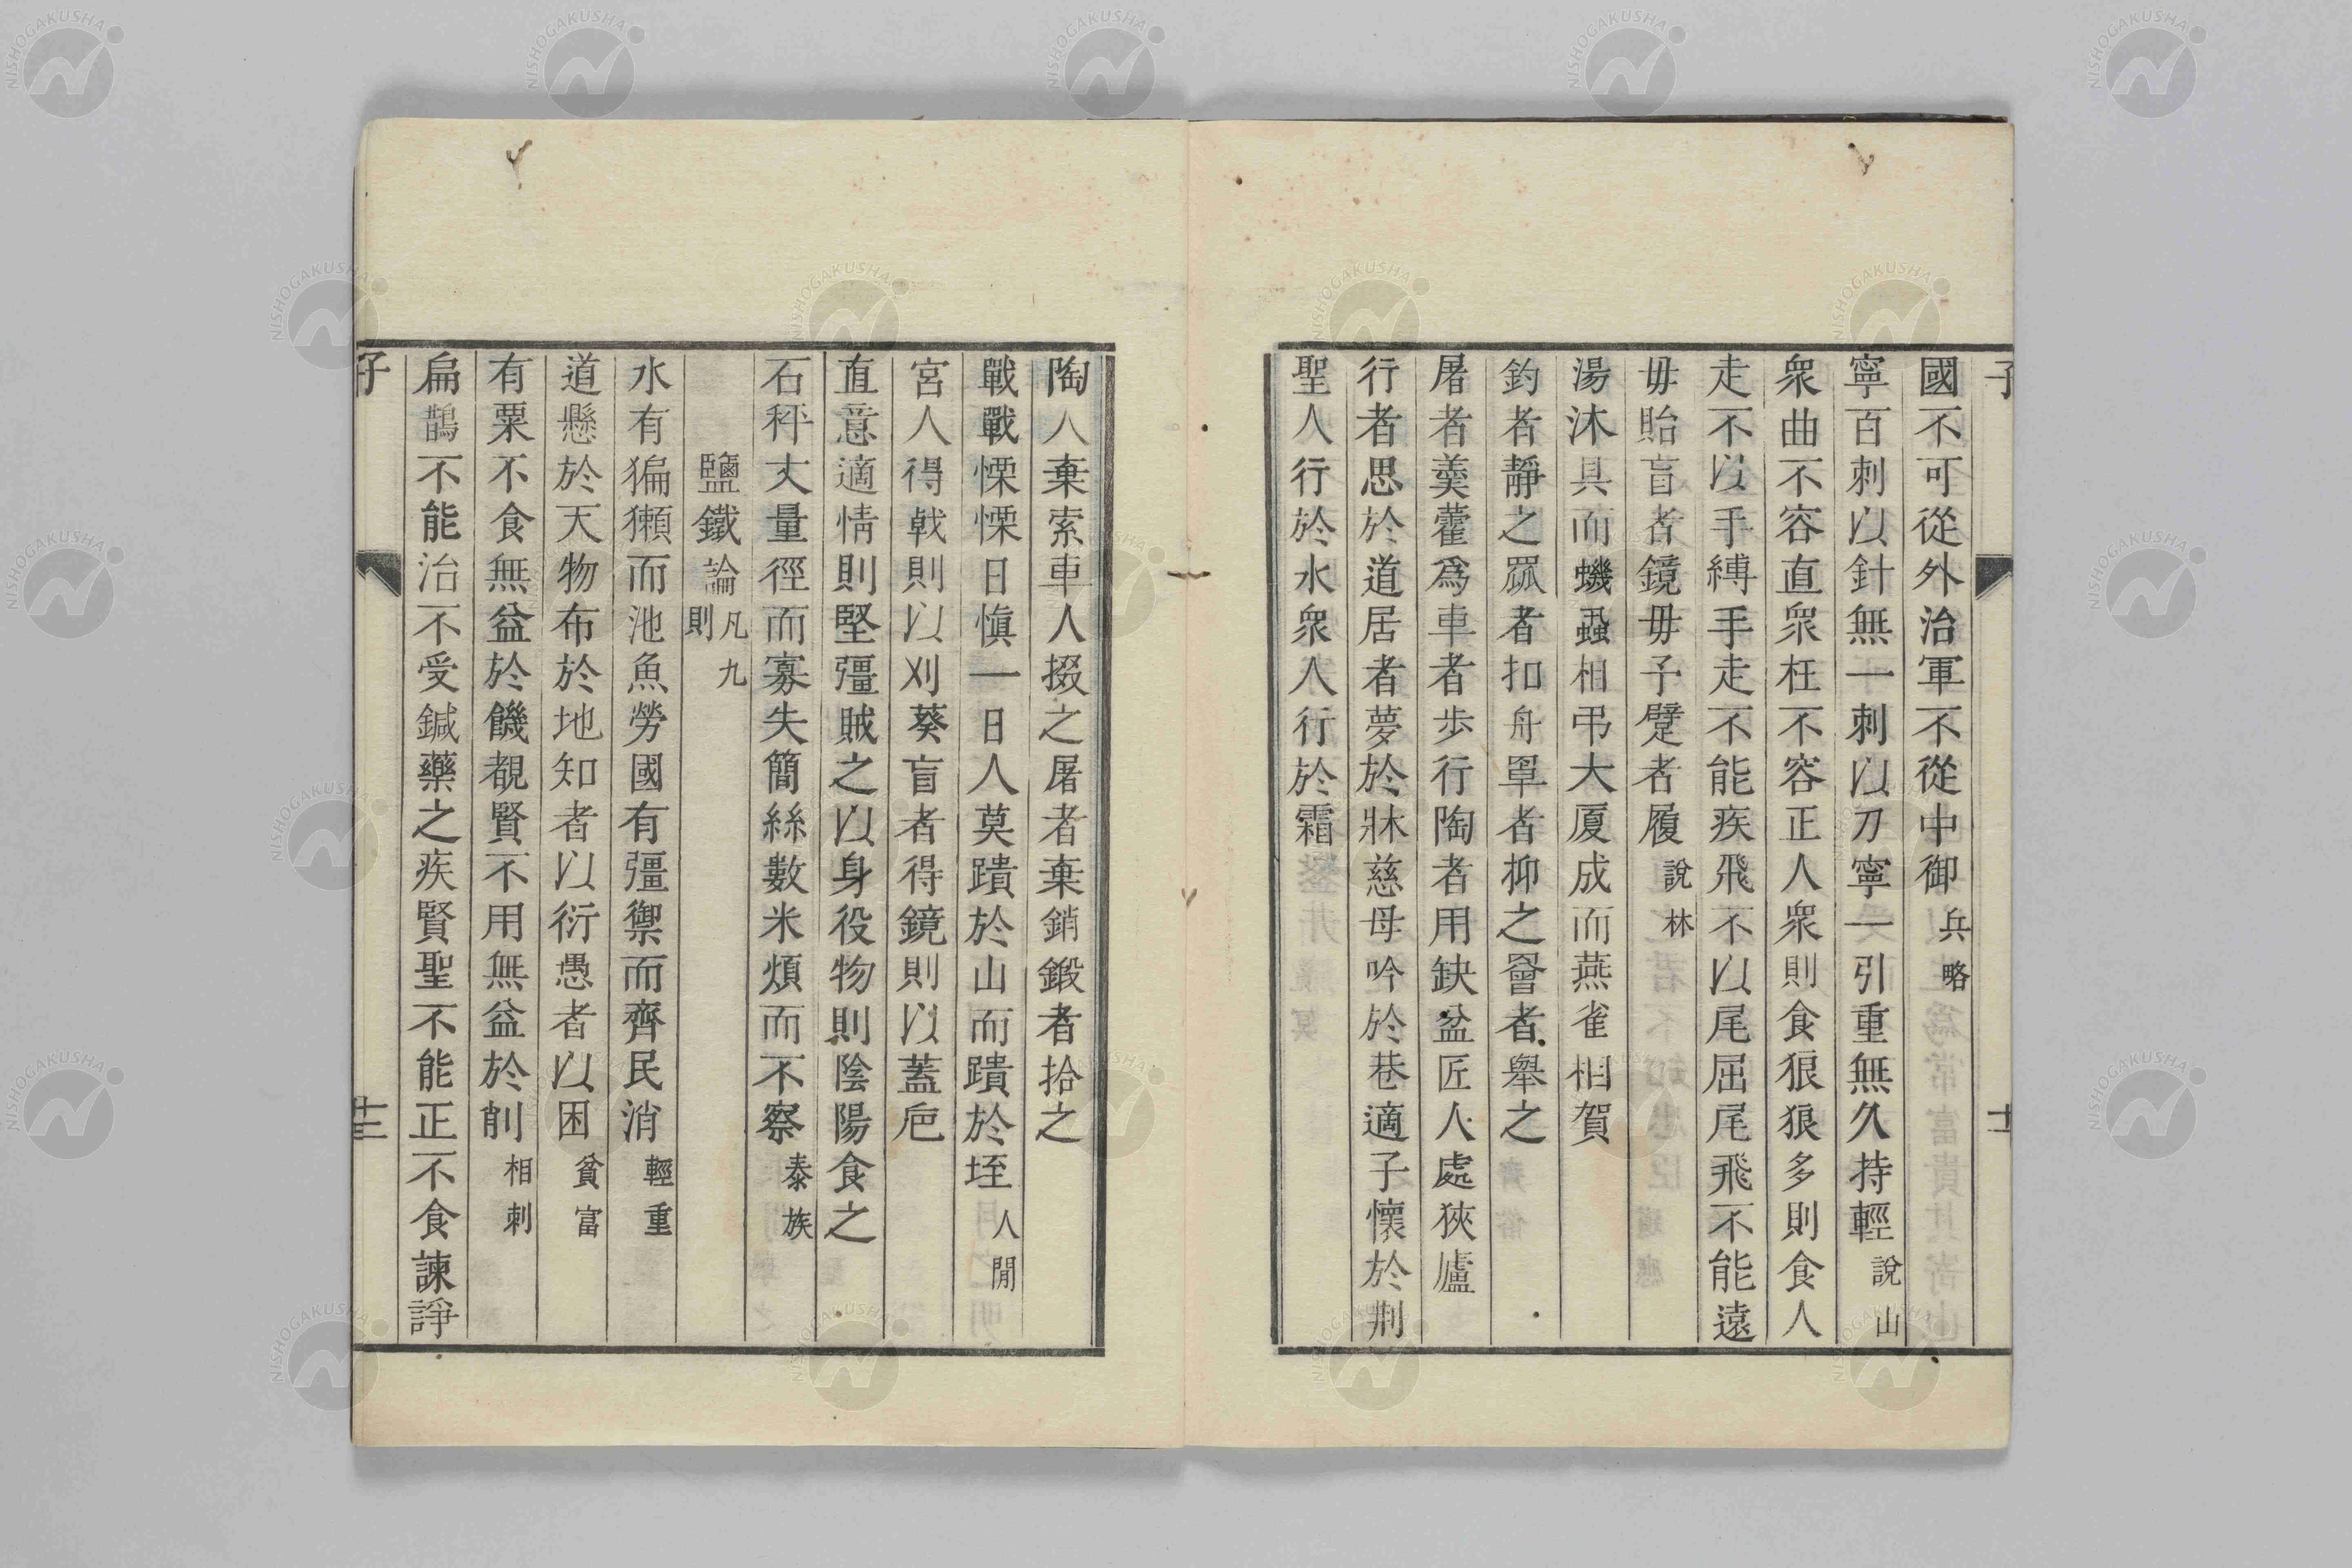 國不可從外治軍不從中御兵略
寧百刺以針無一刺以刀寧一引重無久持輕說山
衆曲不容直衆枉不容正人衆則食狼狼多則食人
走不以手縛手走不能疾飛不以尾屈尾飛不能遠
毋貽盲者鏡毋予躄者履說林
湯沐具而蟣蝨相弔大厦成而燕雀相賀
釣者靜之罛者扣舟罩者抑之罾者舉之
屠者羹藿爲車者步行陶者用缺盆匠人處狹廬
行者思於道居者夢於牀慈母吟於巷適子懷於荆
聖人行於水衆人行於霜
子
十
陶人棄索車人掇之屠者棄銷鍛者拾之
戰戰慄慄日愼一日人莫蹪於山而蹪於垤人閒
宮人得戟則以刈葵盲者得鏡則以蓋巵
直意適情則堅彊賊之以身役物則陰陽食之
石秤丈量徑而寡失簡絲數米煩而不察泰族
鹽鐵論凡九則
水有猵獺而池魚勞國有彊禦而齊民消輕重
道懸於天物布於地知者以衍愚者以困貧富
有粟不食無益於饑覩賢不用無益於削相刺
扁鵲不能治不受鍼藥之疾賢聖不能正不食諫諍
子
十二
NISHOGAKUSHA